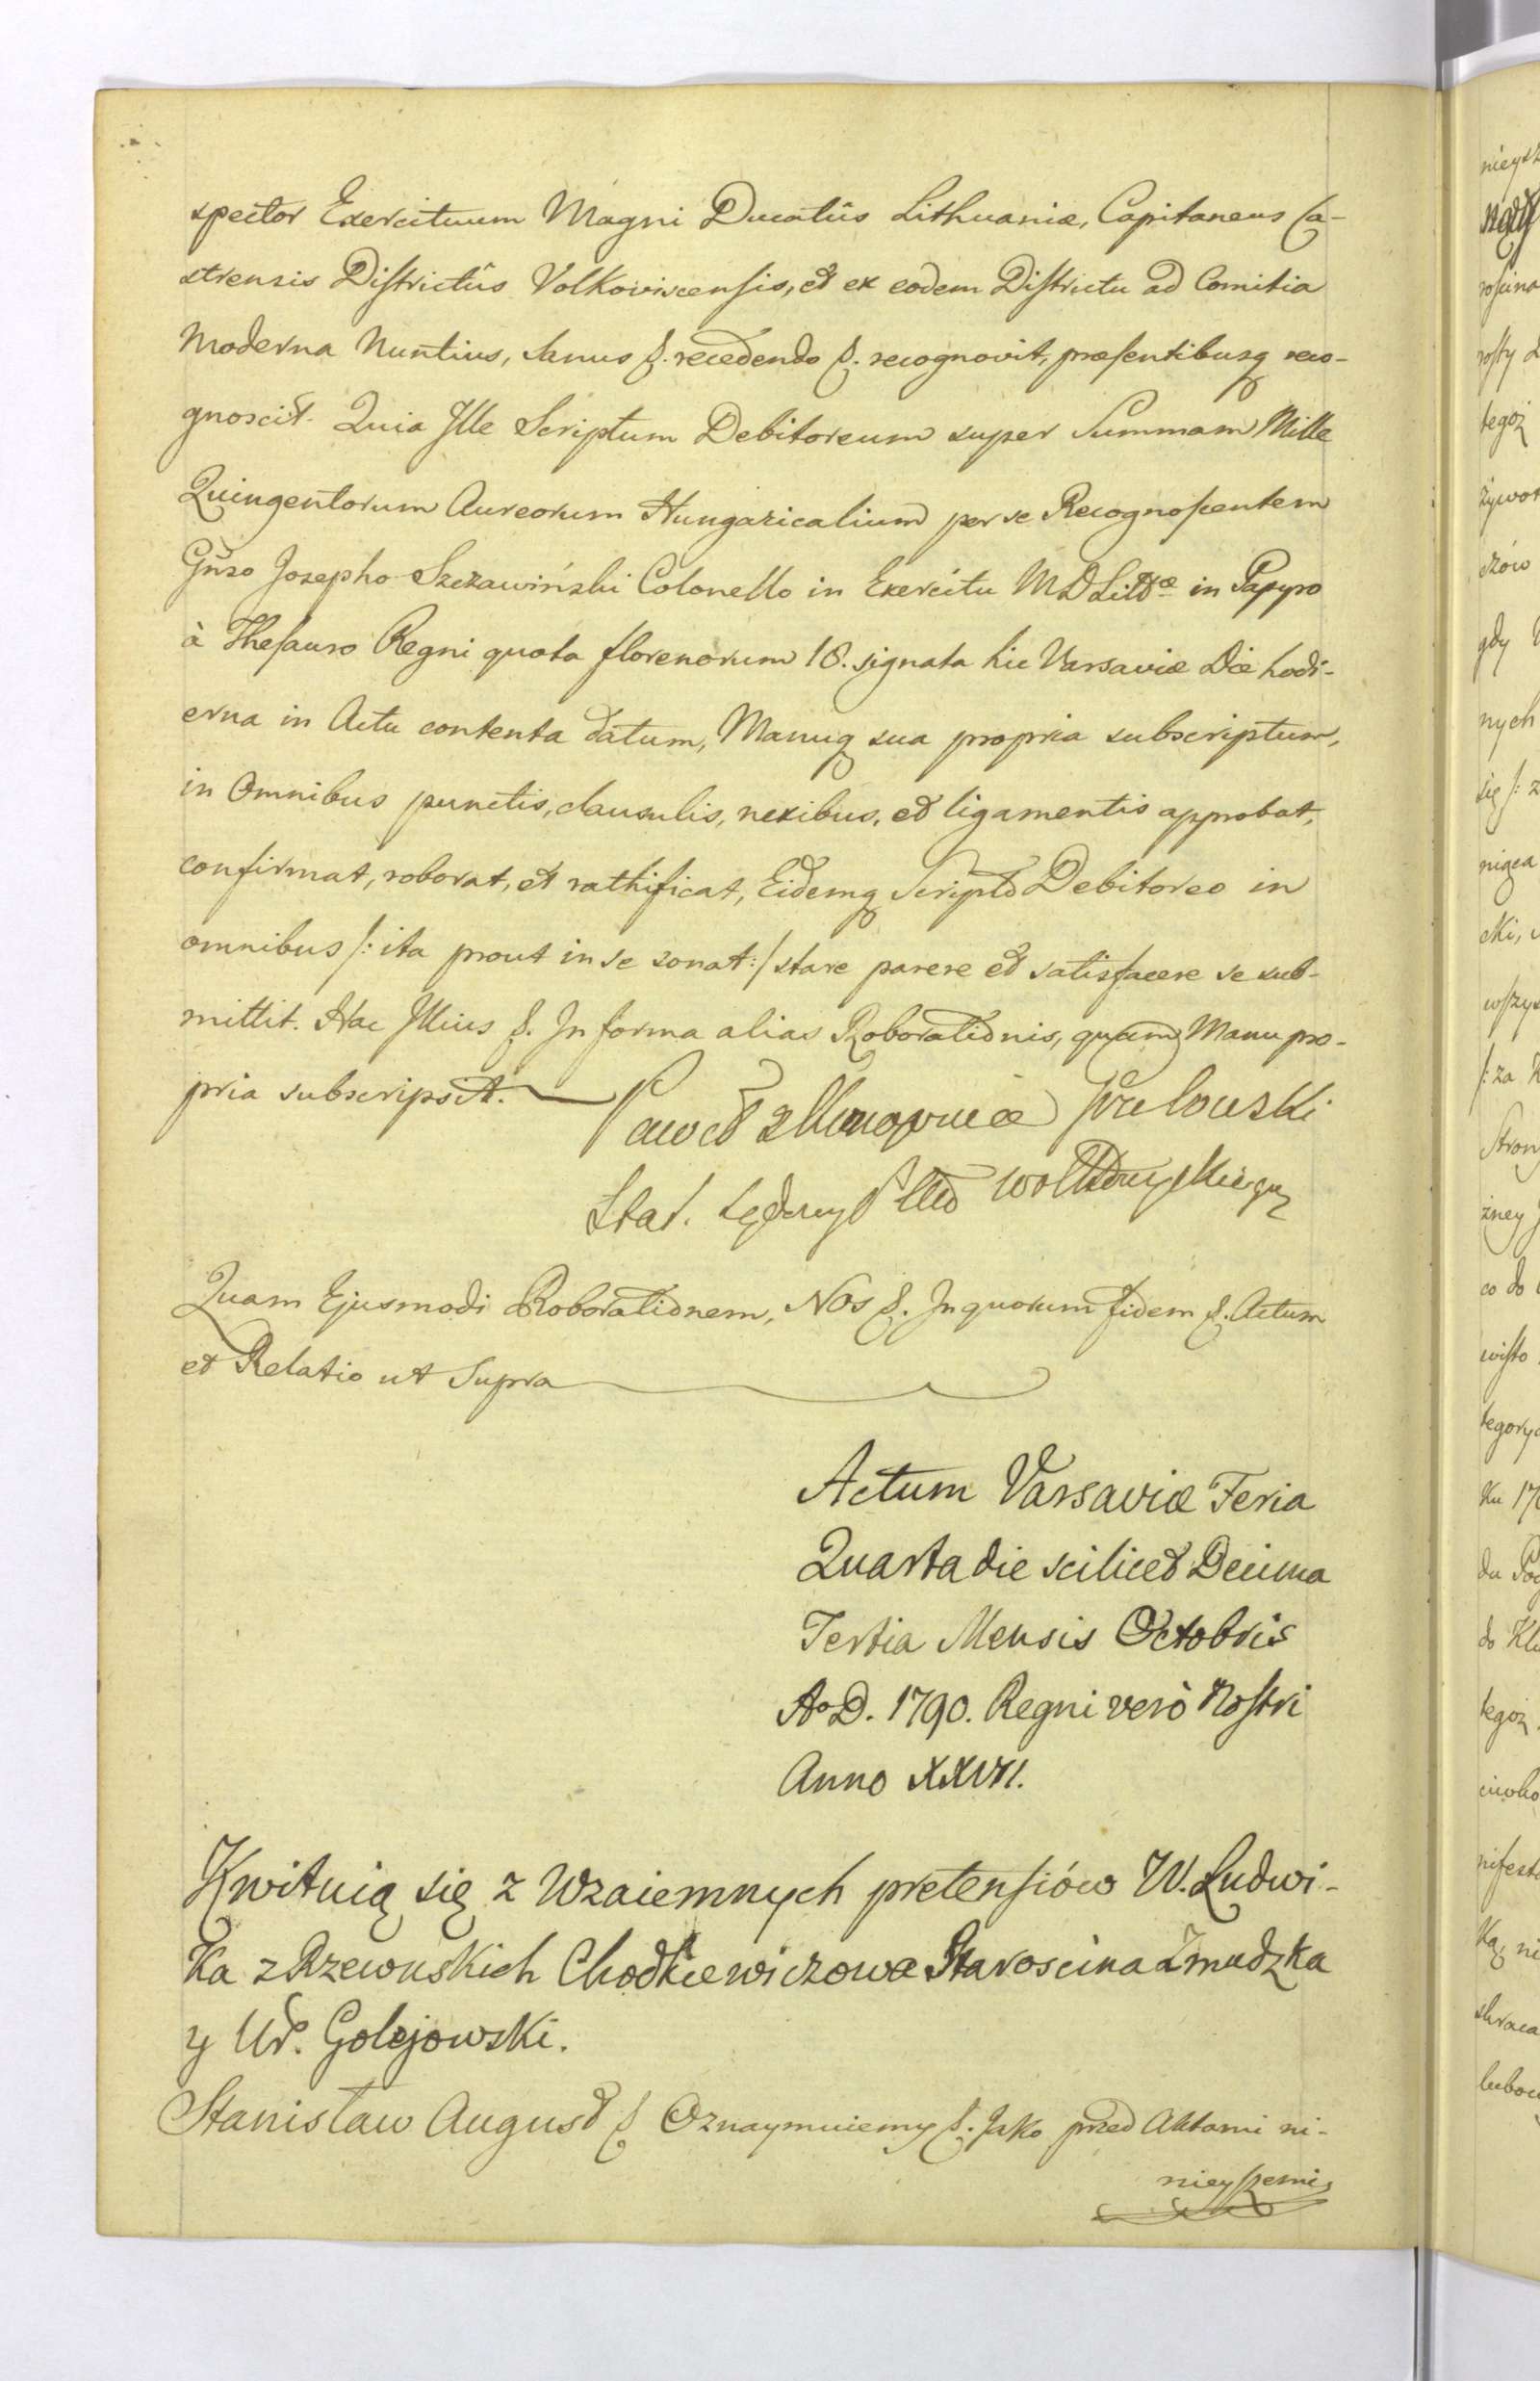 spector Exercituum Magni Ducatûs Lithuaniæ, Capitaneus Ca-
strensis Districtûs Volkoviscensis, et ex eodem Districtu ad Comitia
Moderna Nuntius, Sanus &. recedendo &. recognovit, præsentibusq reco-
gnoscit. Quia Ille Scriptum Debitoreum super Summam Mille
Quingentorum Aureorum Hungaricalium per se Recognoscentem
Gñso Josepho Szczawiński Colonello in Exercitu M D Littæ in Papyro
à Thesauro Regni quota florenorum 18. signata hic Varsaviæ Die hodi-
erna in Actu contenta datum, Manuq sua propria subscriptum,
in Omnibus punctis, clausulis, nexibus, et ligamentis approbat,
confirmat, roborat, et rathificat, Eidemq Scripto Debitoreo in
omnibus /: ita prout in se sonat :/ stare parere et satisfacere se sub-
mittit. Hac Illius &. In forma alias Roborationis, quam Manu pro-
pria subscripsit. Paweł
Quam Ejusmodi Roborationem, Nos &. In quorum fidem &. Actum
et Relatio ut Supra
Actum Varsaviæ Feria
Quarta die scilicet Decima
Tertia Mensis Octobris
Ao D. 1790. Regni verò Nostri
Anno XXVII.
Kwituią się z Wzaiemnych pretensiów W. Ludwi-
ka z Rzewuskich Chodkiewiczowa Starościna Zmudzka
y Ur. Golejowski.
Stanisław August & Oznaymuiemy &. Jako przed Aktami ni-
nieyszemi
nieysz
tegoż
gdy
nych
cki,
/: za
co do
do
tegoż